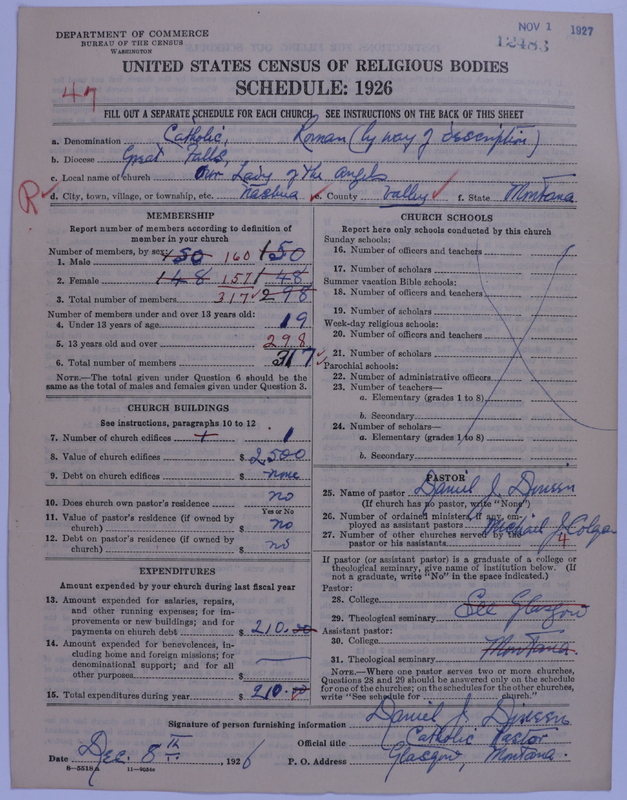 DEPARTMENT OF COMMERCE
BUREAU OF THE CENSUS
WASHINGTON
NOV 1 1927
12483
UNITED STATES CENSUS OF RELIGIOUS BODIES
SCHEDULE: 1926
47
FILL OUT A SEPARATE SCHEDULE FOR EACH CHURCH. SEE INSTRUCTIONS ON THE BACK OF THIS SHEET
a. Denomination Catholic, Roman (by way of description)
b. Diocese Great Falls,
c. Local name of church Our Lady of the Angels
R d. City, town, village, or township, etc. Nashua e. County Valley f. State Montana
MEMBERSHIP
Report number of members according to definition of
member in your church
Number of members, by sex:
1. Male 150 160 150
2. Female 148 157 148
3. Total number of members 317 298
Number of members under and over 13 years old:
4. Under 13 years of age 19
5. 13 years old and over 298
6. Total number of members 317
NOTE.—The total given under Question 6 should be the
same as the total of males and females given under Question 3.
CHURCH BUILDINGS
See instructions, paragraphs 10 to 12
7. Number of church edifices 1
8. Value of church edifices $ 2,500
9. Debt on church edifices $ none
10. Does church own pastor's residence no
Yes or No
11. Value of pastor's residence (if owned by
church) $ no
12. Debt on pastor's residence (if owned by
church) $ no
EXPENDITURES
Amount expended by your church during last fiscal year
13. Amount expended for salaries, repairs,
and other running expenses; for im-
provements or new buildings; and for
payments on church debt $ 210.00
14. Amount expended for benevolences, in-
cluding home and foreign missions; for
denominational support; and for all
other purposes $
15. Total expenditures during year $ 210.00
CHURCH SCHOOLS
Report here only schools conducted by this church
Sunday schools:
16. Number of officers and teachers
17. Number of scholars
Summer vacation Bible schools:
18. Number of officers and teachers
19. Number of scholars
Week-day religious schools:
20. Number of officers and teachers
21. Number of scholars
Parochial schools:
22. Number of administrative officers
23. Number of teachers—
a. Elementary (grades 1 to 8)
b. Secondary
24. Number of scholars—
a. Elementary (grades 1 to 8)
b. Secondary
PASTOR
25. Name of pastor Daniel J. Dineen
(If church has no pastor, write "None")
26. Number of ordained ministers, if any, em-
ployed as assistant pastors Michael J. Colgan
27. Number of other churches served by the
pastor or his assistants 4
If pastor (or assistant pastor) is a graduate of a college or
theological seminary, give name of institution below. (If
not a graduate, write "No" in the space indicated.)
Pastor:
28. College
29. Theological seminary See Glasgow
Assistant pastor:
30. College Montana
31. Theological seminary
NOTE.—Where one pastor serves two or more churches,
Questions 28 and 29 should be answered only on the schedule
for one of the churches; on the schedules for the other churches,
write "See schedule for church."
Signature of person furnishing information Daniel J. Dineen
Official title Catholic Pastor
Date Dec. 8th, 1926 P. O. Address Glasgow, Montana.
8—5518A